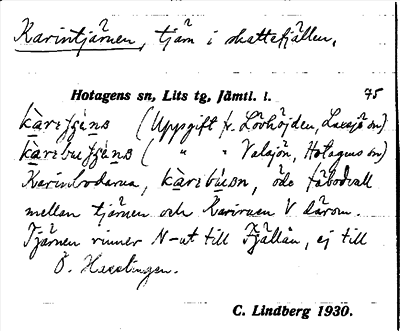 Karintjärnen, tjärn i skattefjällen.
Hotagens sn, Lits tg, Jämtl. l. 75
(Uppgift fr. Lövhöjden, Laxsjö sn)
( " " Valsjön, Hotagens sn)
Karinbodarna, öde fäbodvall
mellan tjärnen och V därom.
Tjärnen rinner N-ut till Fjällån, ej till
Ö. Hesslingen.
C. Lindberg 1930.